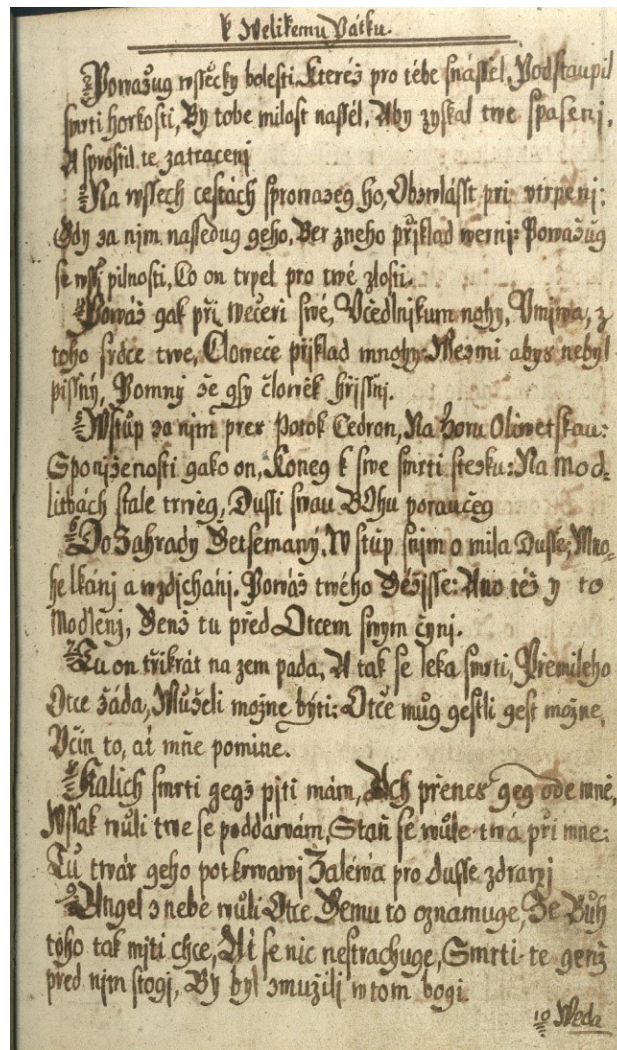 k Welikemu Pátku.
2 Powažug wssecky bolesti, Kteréž pro tébe snássel, Podstaupil
smrti horkosti, By tobe milost nassél, Aby zyskal twe spasenj,
A sprostil te zatracenj
3 Na wssech cestách sprowazeg ho, Obzwlásst pri vtrpenj:
Gdy za njm nassedug geho, Ber z neho přjklad wernj: Powažůg
se wssj pilnosti, Co on trpel pro twé zlosti.
4 Powáž gak při Wečeri swé, Včedlnjkum nohy, Vmjwa, z
toho srdce twe, Cloweče přjklad mnohy: Wezmi abys nebyl
pissný, Pomny že gsy člowěk hřissnj.
5 Wstůp za njm prez Potok Cedron, Na horu Oliwetskau:
S ponjženosti gako on, Koneg k swe smrti stezku: Na Mod-
litbách stale trwěg, Dussi swau BOhu poraučeg
6 Do Zahrady Getsemaný, Wstúp s njm o mila Dusse, Mno-
he lkánj a wzdjchánj. Powáž twého Gežjsse: Ano též y to
Modlenj, Genž tu před Otcem swym čynj.
7 Tu on třikrát na zem pada, A tak se leka smrti, Přemileho
Otce žáda, Můželi možne býti: Otče můg gestli gest možne,
Včin to, ať mňe pomine.
8 Kalich smrti gegž pjti mám, Ach přenes geg ode mně,
Wssak wůli twe se poddáwám, Staň se wůle twá při mne:
Tů twár geho pot krwawj Zaléwa pro dusse zdrawj
9 Angel z nebe wůli Otce Gemu to oznamuge, Že Bůh
toho tak mjti chce, Ať se nic nestrachuge, Smrti te genž
před njm stogj, By byl zmužilj w tom bogi.
10 Weda